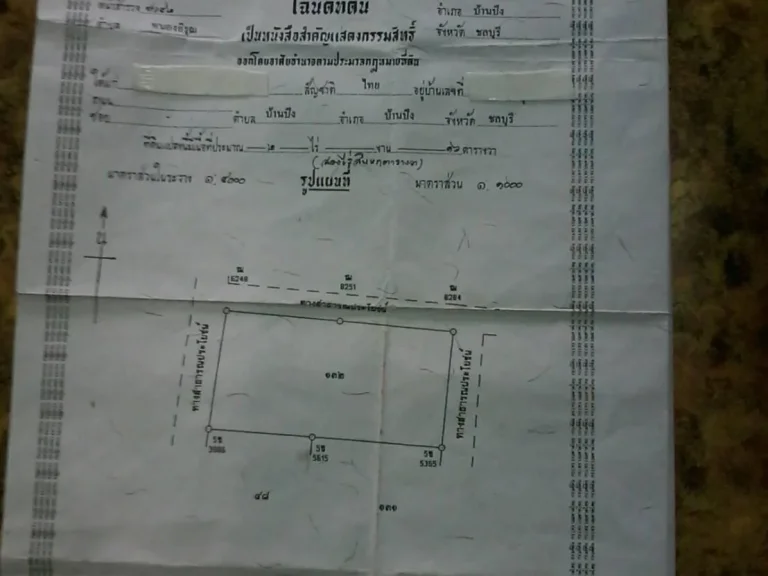 โฉนดที่ดิน
อำเภอ บ้านบึง
ตำบล หนองอิรุณ
เป็นหนังสือสำคัญแสดงกรรมสิทธิ์
จังหวัด ชลบุรี
ออกโดยอาศัยอำนาจตามประมวลกฎหมายที่ดิน
ให้แก่ สัญชาติ ไทย อยู่บ้านเลขที่
ถนน
ซอย ตำบล บ้านบึง อำเภอ บ้านบึง จังหวัด ชลบุรี
ที่ดินแปลงนี้มีเนื้อที่ประมาณ ๒ ไร่ งาน ตารางวา
มาตราส่วนในระวาง ๑:๔๐๐๐ รูปแผนที่ มาตราส่วน ๑:๑๐๐๐
น
16248 8251 8284
ทางสาธารณประโยชน์
ทางสาธารณประโยชน์
ทางสาธารณประโยชน์
๑๓๒
5ช 5ช 5ช
3986 5615 5365
๔๘ ๑๓๑